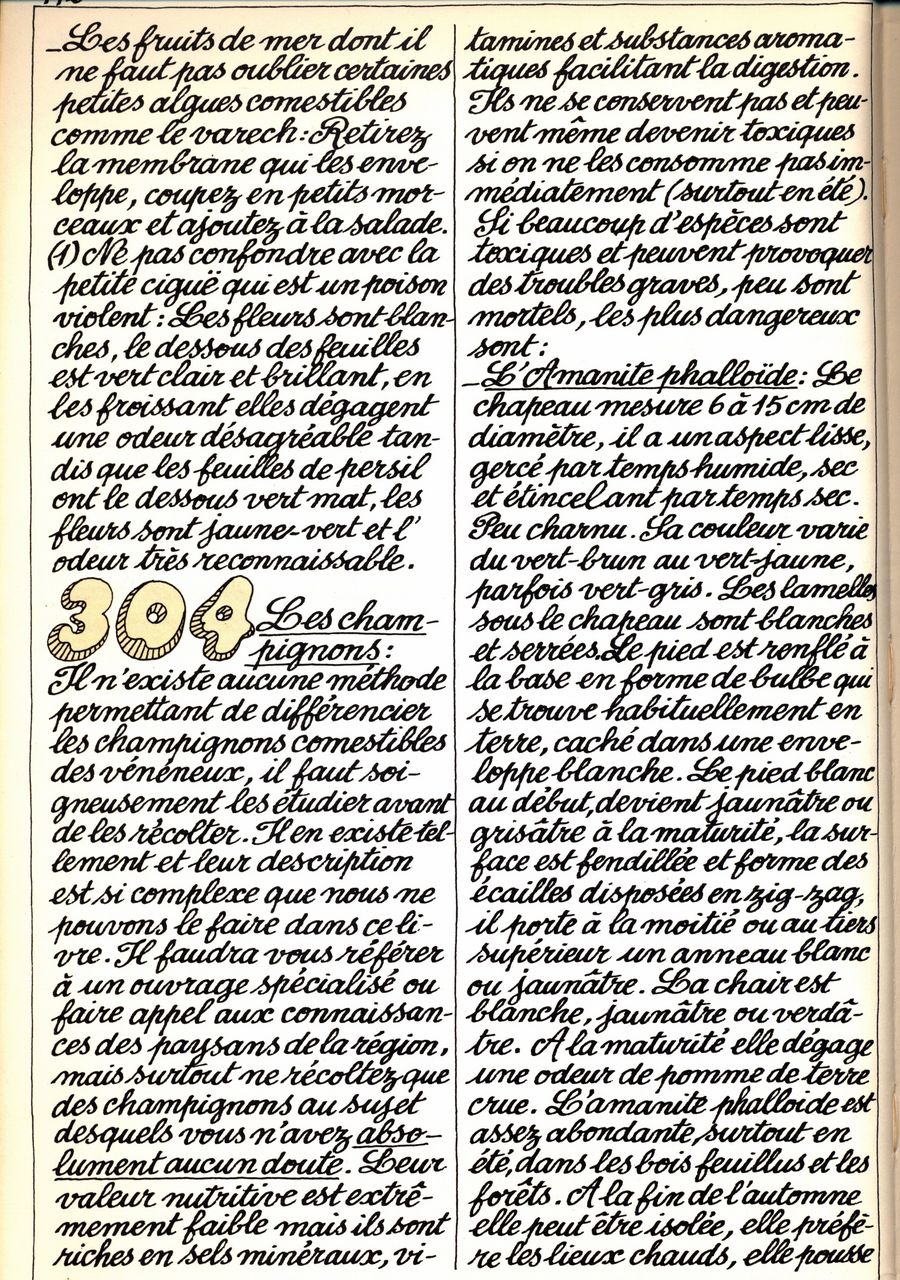 _Les fruits de mer dont il
ne faut pas oublier certaines
petites algues comestibles
comme le varech : Retirez
la membrane qui les enve-
loppe, coupez en petits mor-
ceaux et ajoutez à la salade.
(1) Ne pas confondre avec la
petite ciguë qui est un poison
violent : Les fleurs sont blan-
ches, le dessous des feuilles
est vert clair et brillant, en
les froissant elles dégagent
une odeur désagréable tan-
dis que les feuilles de persil
ont le dessous vert mat, les
fleurs sont jaune-vert et l'
odeur très reconnaissable.
304 Les cham-
pignons :
Il n'existe aucune méthode
permettant de différencier
les champignons comestibles
des vénéneux, il faut soi-
gneusement les étudier avant
de les récolter. Il en existe tel-
lement et leur description
est si complexe que nous ne
pouvons le faire dans ce li-
vre. Il faudra vous référer
à un ouvrage spécialisé ou
faire appel aux connaissan-
ces des paysans de la région,
mais surtout ne récoltez que
des champignons au sujet
desquels vous n'avez abso-
lument aucun doute. Leur
valeur nutritive est extrê-
mement faible mais ils sont
riches en sels minéraux, vi-
tamines et substances aroma-
tiques facilitant la digestion.
Ils ne se conservent pas et peu-
vent même devenir toxiques
si on ne les consomme pas im-
médiatement (surtout en été).
Si beaucoup d'espèces sont
toxiques et peuvent provoquer
des troubles graves, peu sont
mortels, les plus dangereux
sont :
_L'Amanite phalloïde : Le
chapeau mesure 6 à 15 cm de
diamètre, il a un aspect lisse,
gercé par temps humide, sec
et étincelant par temps sec.
Peu charnu. Sa couleur varie
du vert-brun au vert-jaune,
parfois vert-gris. Les lamelles
sous le chapeau sont blanches
et serrées. Le pied est renflé à
la base en forme de bulbe qui
se trouve habituellement en
terre, caché dans une enve-
loppe blanche. Le pied blanc
au début, devient jaunâtre ou
grisâtre à la maturité, la sur-
face est fendillée et forme des
écailles disposées en zig-zag,
il porte à la moitié ou au tiers
supérieur un anneau blanc
ou jaunâtre. La chair est
blanche, jaunâtre ou verdâ-
tre. A la maturité elle dégage
une odeur de pomme de terre
crue. L'amanite phalloide est
assez abondante, surtout en
été, dans les bois feuillus et les
forêts. A la fin de l'automne
elle peut être isolée, elle préfè-
re les lieux chauds, elle pousse